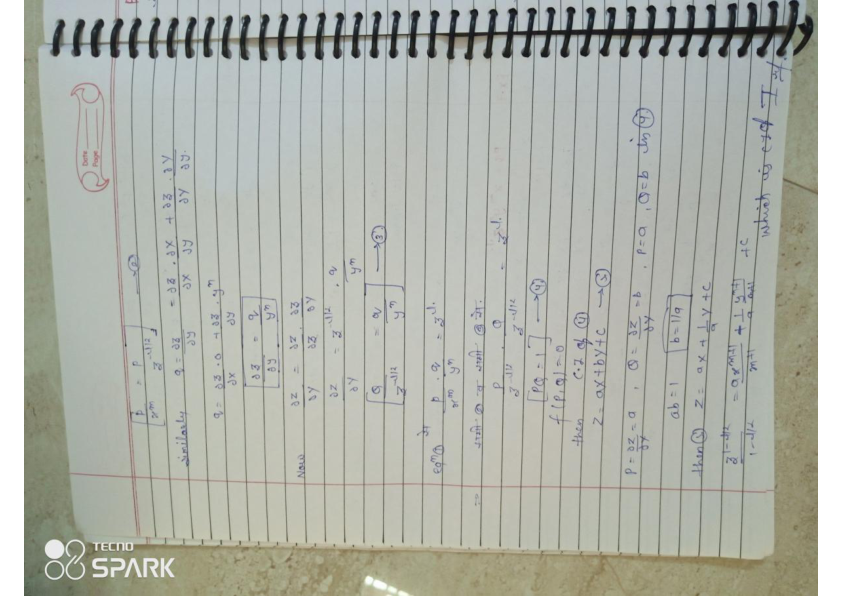 Date
Page
[p/x^m = P/z^{-l/2}] → ②
Similarly q = ∂z/∂y = ∂z/∂x · ∂x/∂y + ∂z/∂y · ∂y/∂y.
q = ∂z/∂x · 0 + ∂z/∂y · y^n
[∂z/∂y = q/y^n]
Now ∂z/∂y = ∂z/∂z · ∂z/∂y
∂z/∂y = z^{-l/2} · q/y^n
[Q/z^{-l/2} = q/y^n] → ③
eqn ① से
p/x^m · q/y^n = z^l.
समी. ② व समी ③ से.
P/z^{-l/2} · Q/z^{-l/2} = z^l.
[PQ = 1] → ④
f(P,Q) = 0
then C.I of ④
Z = ax + by + c → ⑤
P = ∂z/∂x = a, Q = ∂z/∂y = b, P = a, Q = b in ④
ab = 1 [b = 1/a]
then ⑤ Z = ax + 1/a y + c
z^{1-l/2}/1-l/2 = a x^{m+1}/m+1 + 1/a y^{n+1}/n+1 + c
which is C.I of I
TECNO
SPARK